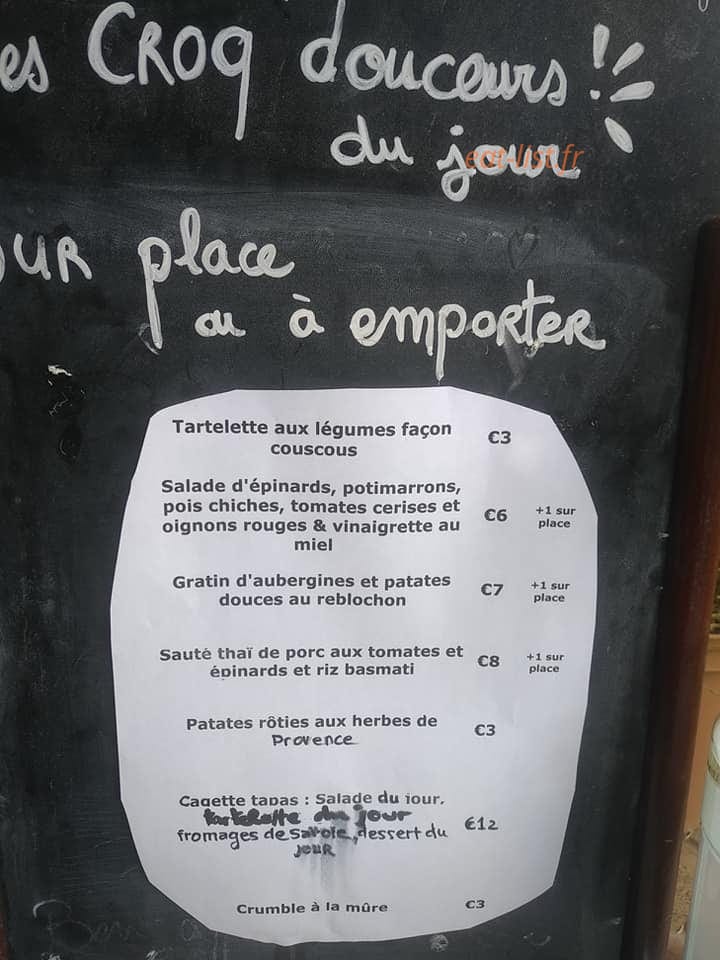 es CROQ douceurs !
du jour
eat-list.fr
our place
ou à emporter
Tartelette aux légumes façon €3
couscous
Salade d'épinards, potimarrons,
pois chiches, tomates cerises et €6 +1 sur
oignons rouges & vinaigrette au place
miel
Gratin d'aubergines et patates €7 +1 sur
douces au reblochon place
Sauté thaï de porc aux tomates et €8 +1 sur
épinards et riz basmati place
Patates rôties aux herbes de €3
Provence
Cagette tapas : Salade du jour,
tartelette du jour €12
fromages de Savoie, dessert du
jour
Crumble à la mûre €3